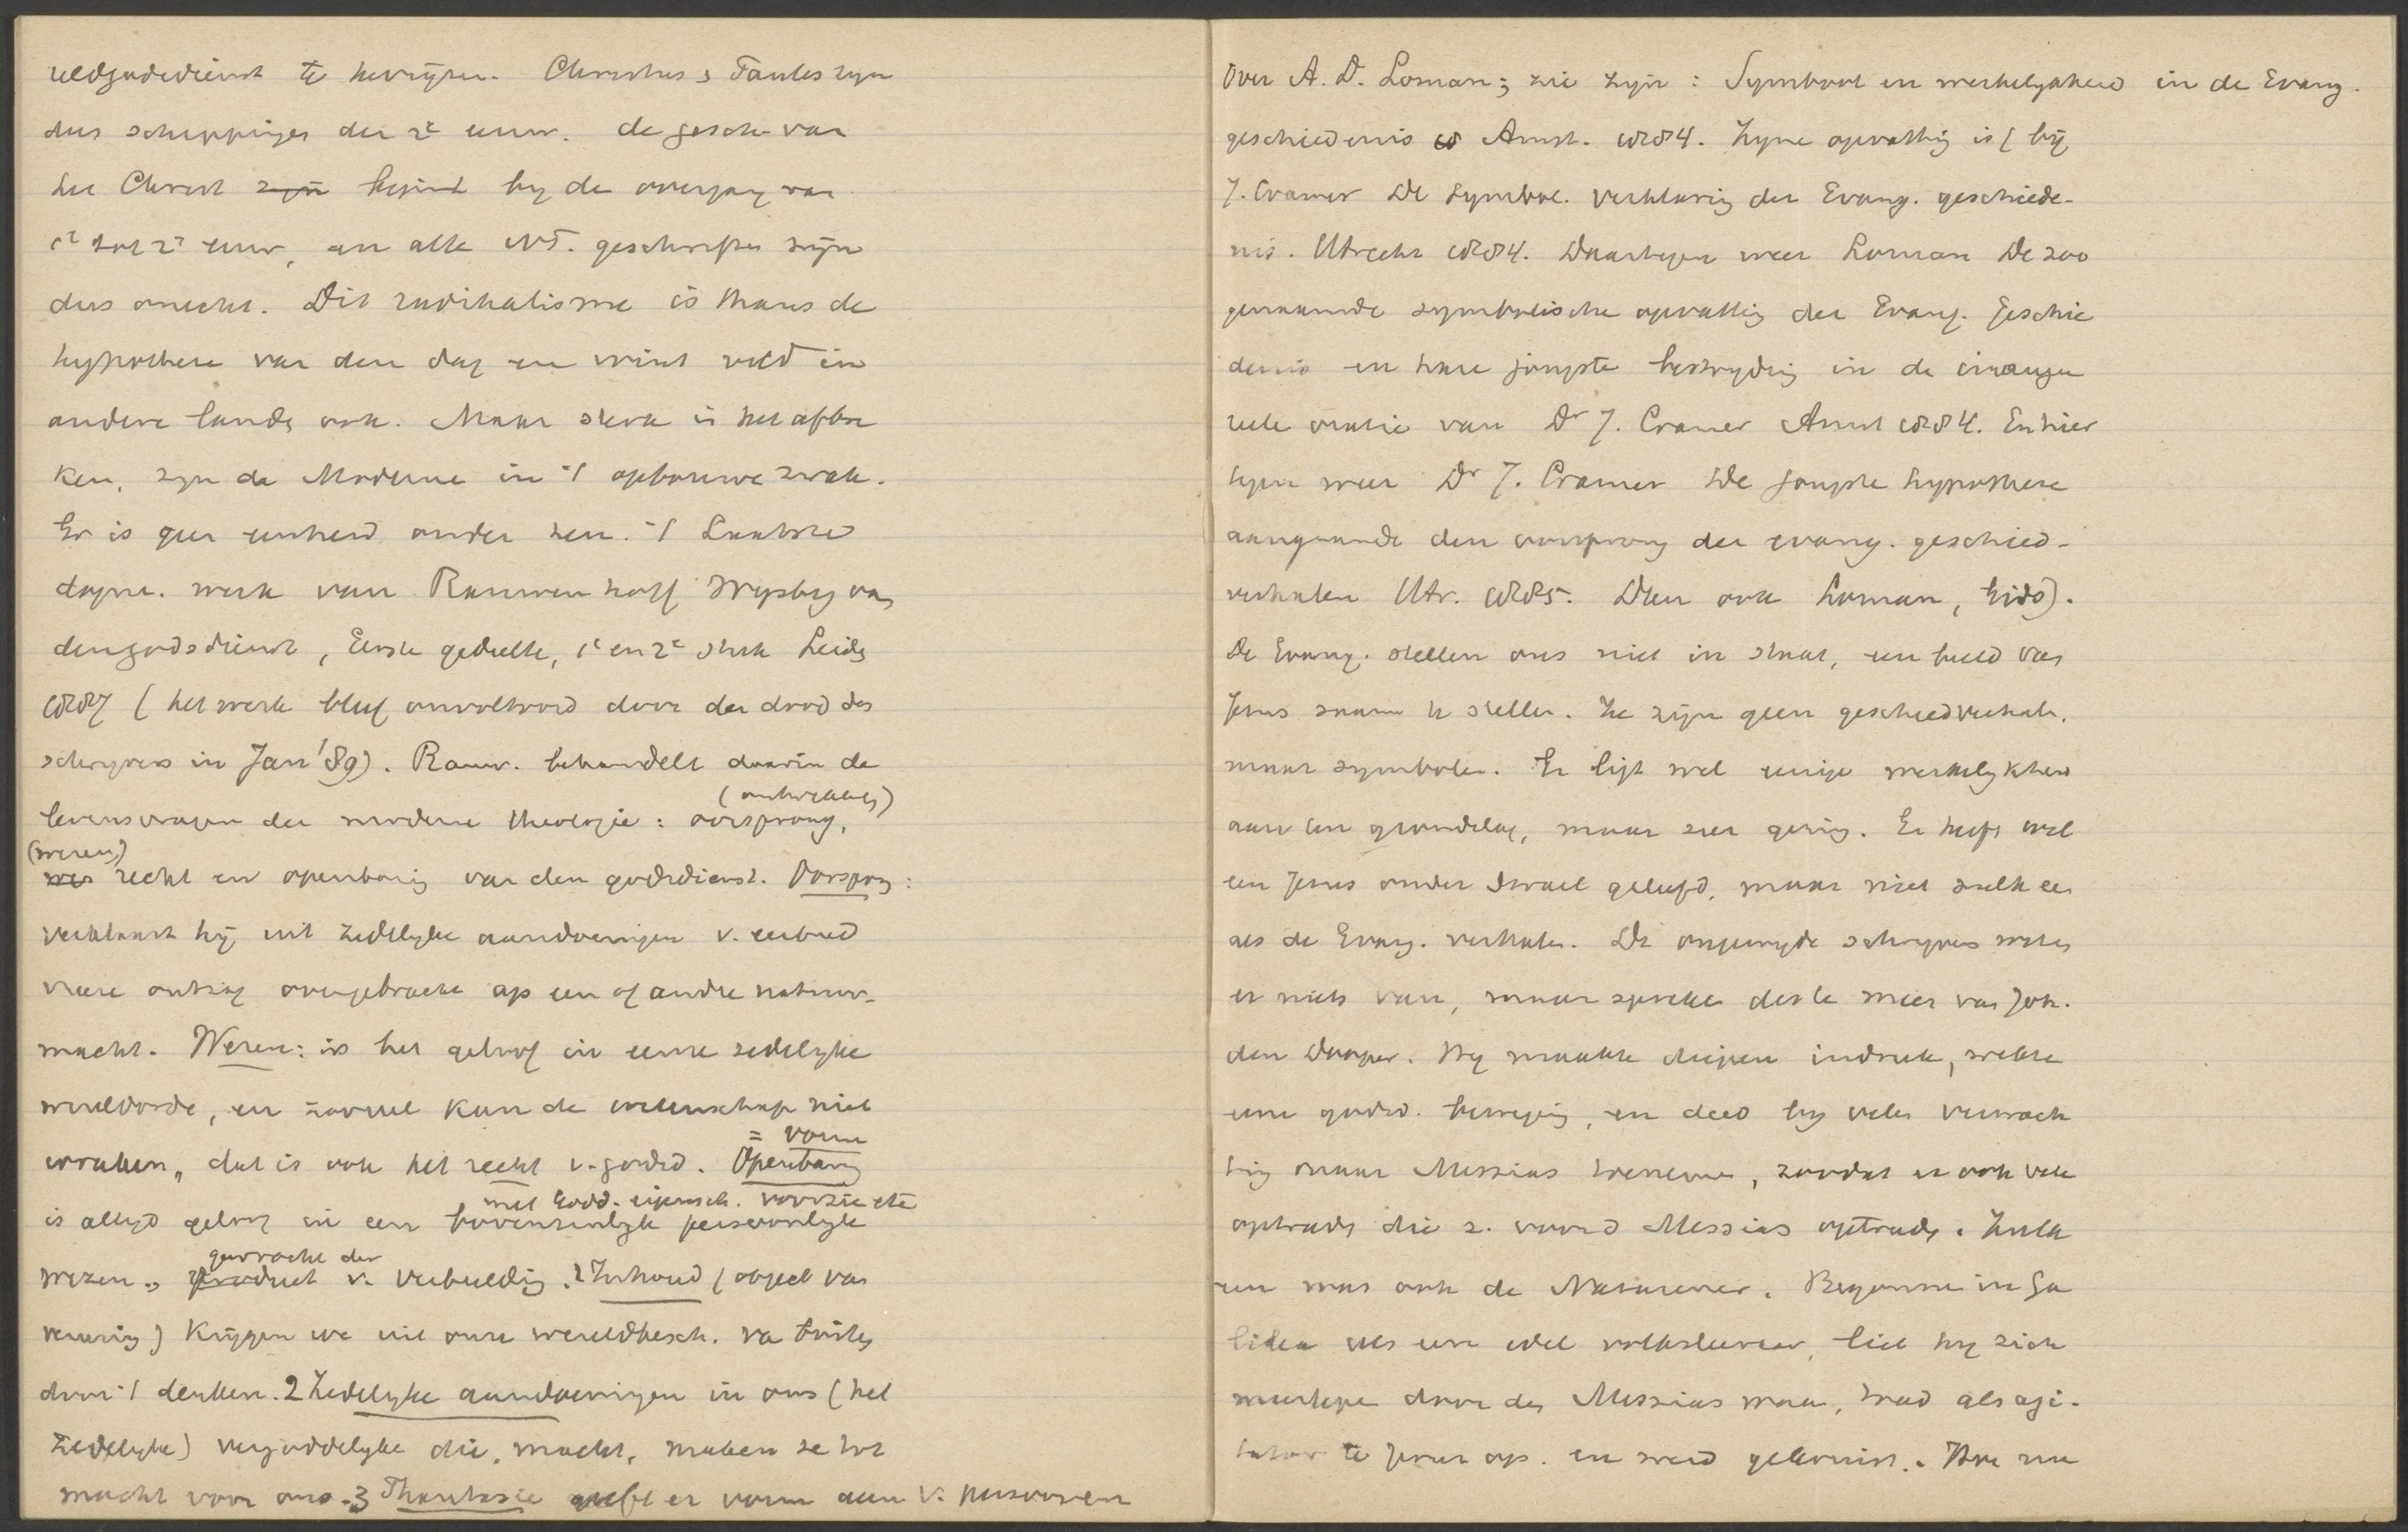 reldgodsdienst te bewijzen. Christus & Paulus zijn
dus scheppingen der 2e eeuw. de gesch. van
het Christ zijn begint bij de overgang van
1e tot 2e eeuw, en alle N.T. geschriften zijn
dus onecht. Dit radikalisme is thans de
hypothese van den dag en wint veld in
andere landen ook. Maar sterk in het afbre
ken, zyn de Moderne in 't opbouwen zwak.
Er is geen eenheid onder hen. 't Laatste
dogm. werk van Rauwenhoff Wysbeg. van
den godsdienst, Eerste gedeelte, 1e en 2e stuk Leiden
1887 (het werk bleef onvoltooid door den dood des
schryvers in Jan '89). Rauw. behandelt daarin de
levensvragen der moderne theologie: oorsprong, (ontwikkeling)
(wezen) wes recht en openbaring van den godsdienst. Oorsprong:
verklaart hij uit zedelyke aandoeningen v. eerbied
vreeze ontzag overgebracht op een of andre natuur-
macht. Wezen: is het geloof in eene zedelyke
wereldorde, en zooveel kan de wetenschap niet
wraken, dat is ook het recht v. godsd. Openbaring = vorm
is altyd geloof in een bovenzinlyk persoonlyk met Godd. eigensch. voorzien
wezen, product gewrocht der v. verbeelding. 1 Inhoud (object van
vereering) krijgen we uit onze wereldbesch. van buiten
door 't denken. 2 Zedelyke aandoeningen in ons (het
zedelyke) vergoddelyken die macht, maken ze tot
macht voor ons. 3 Phantasie geeft er vorm aan v. persoonen
Over A. D. Loman; zie zijn: Symbool en werkelykheid in de Evang.
geschiedenis Amst. 1884. Zyne opvatting is (bij
J. Cramer De symbol. verklaring der Evang. geschiede-
nis. Utrecht 1884. Daartegen weer Loman De zoo
genaamde symbolische opvatting der Evang. Geschie
denis en hare jongste bestryding in de inaugu
reele oratie van Dr J. Cramer Amst 1884. En hier
tegen weer Dr J. Cramer De jongste hypothese
aangaande den oorsprong der evang. geschied-
verhalen Utr. 1885. Dan ook Loman, Gids).
De Evang. stellen ons niet in staat, een beeld van
Jezus saam te stellen. Ze zijn geen geschiedverhalen,
maar symbolen. Er ligt wel eenige werkelykheid
aan ten grondslag, maar zeer gering. Er heeft wel
een Jezus onder Israel geleefd, maar niet zulk een
als de Evang. verhalen. De ongewyde schryvers weten
er niets van, maar spreken des te meer van Joh.
den Dooper. Hy maakte diepen indruk, wekte
eene godsd. beweging, en deed by velen verwach
ting naar Messias toenemen, zoodat er ook vele
optraden die z. voor d Messias optraden. Zulk
een was ook de Nazarener. Begonnen in Ga
lilea als een edel volksleeraar, liet hy zich
meeslepen door den Messias waan, trad als agi-
tator te Jeruz op. en werd gekruist. Hoe nu